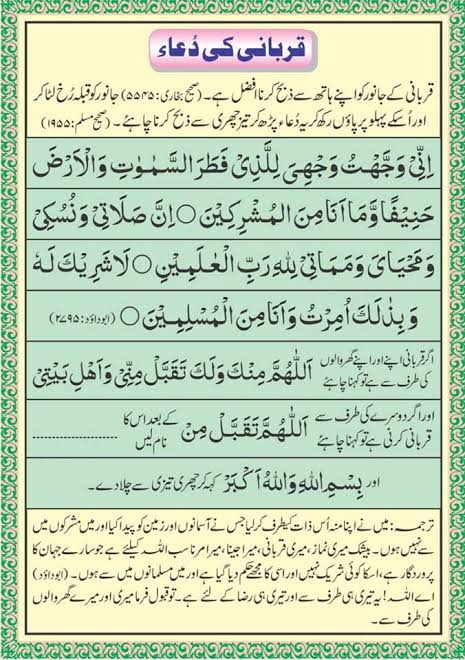 قربانی کی دُعاء
قربانی کے جانور کو اپنے ہاتھ سے ذبح کرنا افضل ہے۔ (صحیح بخاری: ۵۵۳۵) جانور کو قبلہ رُخ لٹا کر
اور اُسکے پہلو پر پاؤں رکھ کر یہ دُعاء پڑھ کر تیز چھری سے ذبح کرنا چاہئے۔ (صحیح مسلم: ۱۹۵۵)
اِنِّیْ وَجَّهْتُ وَجْهِیَ لِلَّذِیْ فَطَرَ السَّمٰوٰتِ وَالْاَرْضَ
حَنِیْفًا وَّمَا اَنَا مِنَ الْمُشْرِکِیْنَ ○ اِنَّ صَلَاتِیْ وَنُسُکِیْ
وَمَحْیَایَ وَمَمَاتِیْ لِلّٰهِ رَبِّ الْعٰلَمِیْنَ ○ لَا شَرِیْكَ لَهٗ
وَبِذٰلِكَ اُمِرْتُ وَاَنَا مِنَ الْمُسْلِمِیْنَ ○ (ابوداؤد: ۲۷۹۵)
اگر قربانی اپنے اور اپنے گھر والوں کی طرف سے ہے تو کہنا چاہئے اَللّٰهُمَّ مِنْكَ وَلَكَ تَقَبَّلْ مِنِّیْ وَاَهْلِ بَیْتِیْ
اور اگر دوسرے کی طرف سے قربانی کرنی ہے تو کہنا چاہئے اَللّٰهُمَّ تَقَبَّلْ مِنْ کے بعد اس کا نام لیں ....................
اور بِسْمِ اللهِ وَاللهُ اَکْبَرْ کہہ کر چھری تیزی سے چلادے۔
ترجمہ: میں نے اپنا منہ اُس ذات کیطرف کرلیا جس نے آسمانوں اور زمین کو پیدا کیا اور میں مشرکوں میں
سے نہیں ہوں۔ بیشک میری نماز، میری قربانی، میرا جینا، میرا مرنا سب اللہ کیلئے ہے جو سارے جہان کا
پروردگار ہے، اسکا کوئی شریک نہیں اور اسی کا مجھے حکم دیا گیا ہے اور میں مسلمانوں میں سے ہوں۔ (ابوداؤد)
اے اللہ! یہ تیری ہی طرف سے اور تیری ہی رضا کے لئے ہے۔ تو قبول فرما میری اور میرے گھر والوں
کی طرف سے۔